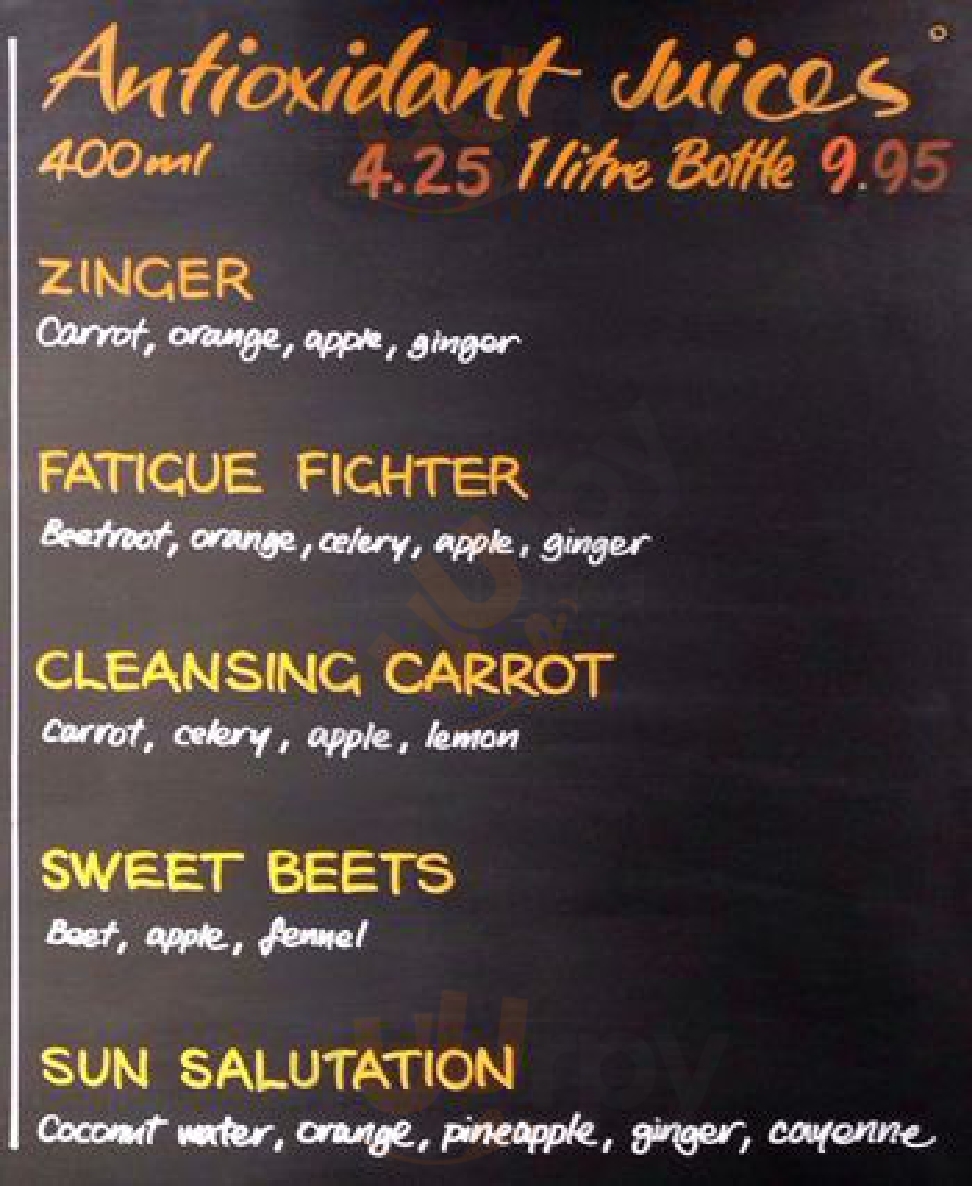 Antioxidant Juices
400ml 4.25 1 litre Bottle 9.95
ZINGER
Carrot, orange, apple, ginger
FATIGUE FIGHTER
Beetroot, orange, celery, apple, ginger
CLEANSING CARROT
Carrot, celery, apple, lemon
SWEET BEETS
Beet, apple, fennel
SUN SALUTATION
Coconut water, orange, pineapple, ginger, cayenne